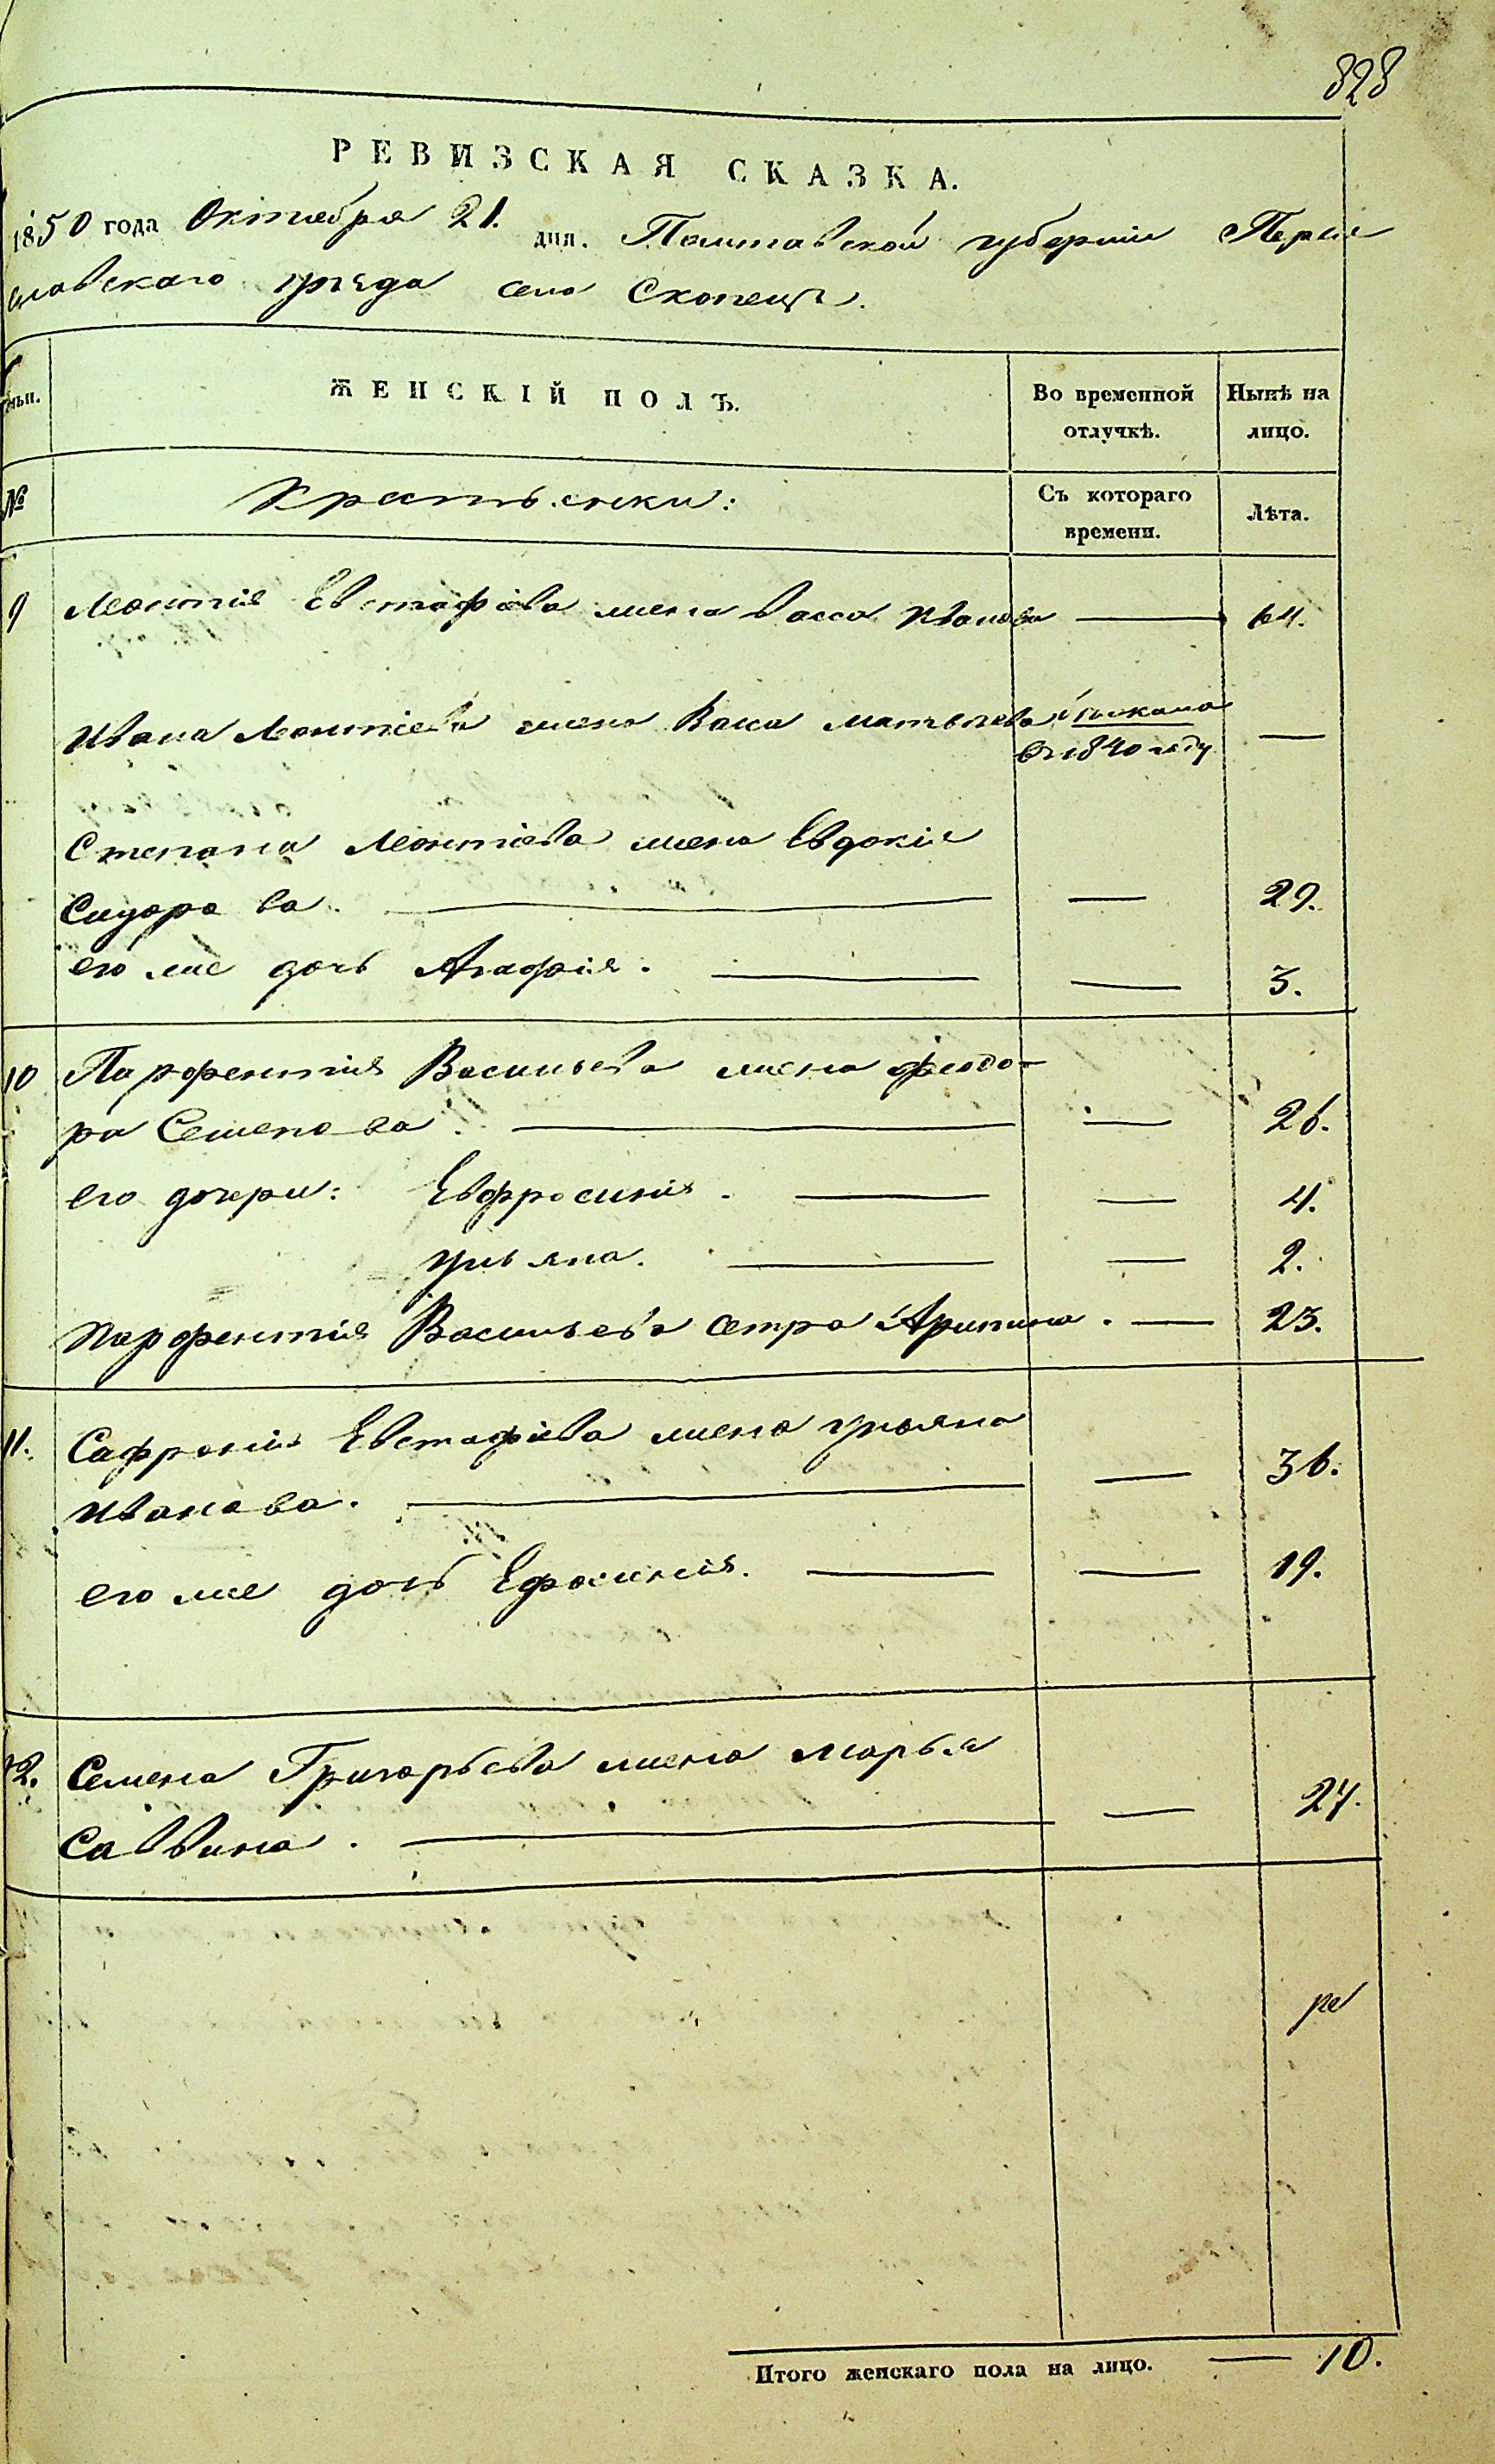 828
РЕВИЗСКАЯ СКАЗКА.
1850 года Октября 21. дня. Полтавской губернии Перея
славскаго уѣзда село Скопецъ.
ЖЕНСКІЙ ПОЛЪ.
Во временной отлучкѣ.
Нынѣ на лицо.
№
Крестьянки:
Съ котораго времени.
Лѣта.
9 Леонтія Евстафіева жена Васса Иванова — 64.
Ивана Леонтіева жена Васса Матвѣева
въ 1840 году —
Степана Леонтіева жена Евдокія
Сидорова. — — 29.
его же дочь Агафія. — — 3.
10 Парфентія Васильева жена Феодо-
ра Семенова. — — 26.
его дочери: Евфросинія. — — 4.
Ульяна. — — 2.
Парфентія Васильева сетра Агрипина. — 23.
11. Сафронія Евстафіева жена Ульяна
Иванова. — — 36.
его же дочь Ефросинія. — — 19.
12. Семена Григорьева жена Марья
Саввина. — — 27.
ре
Итого женскаго пола на лицо. — 10.